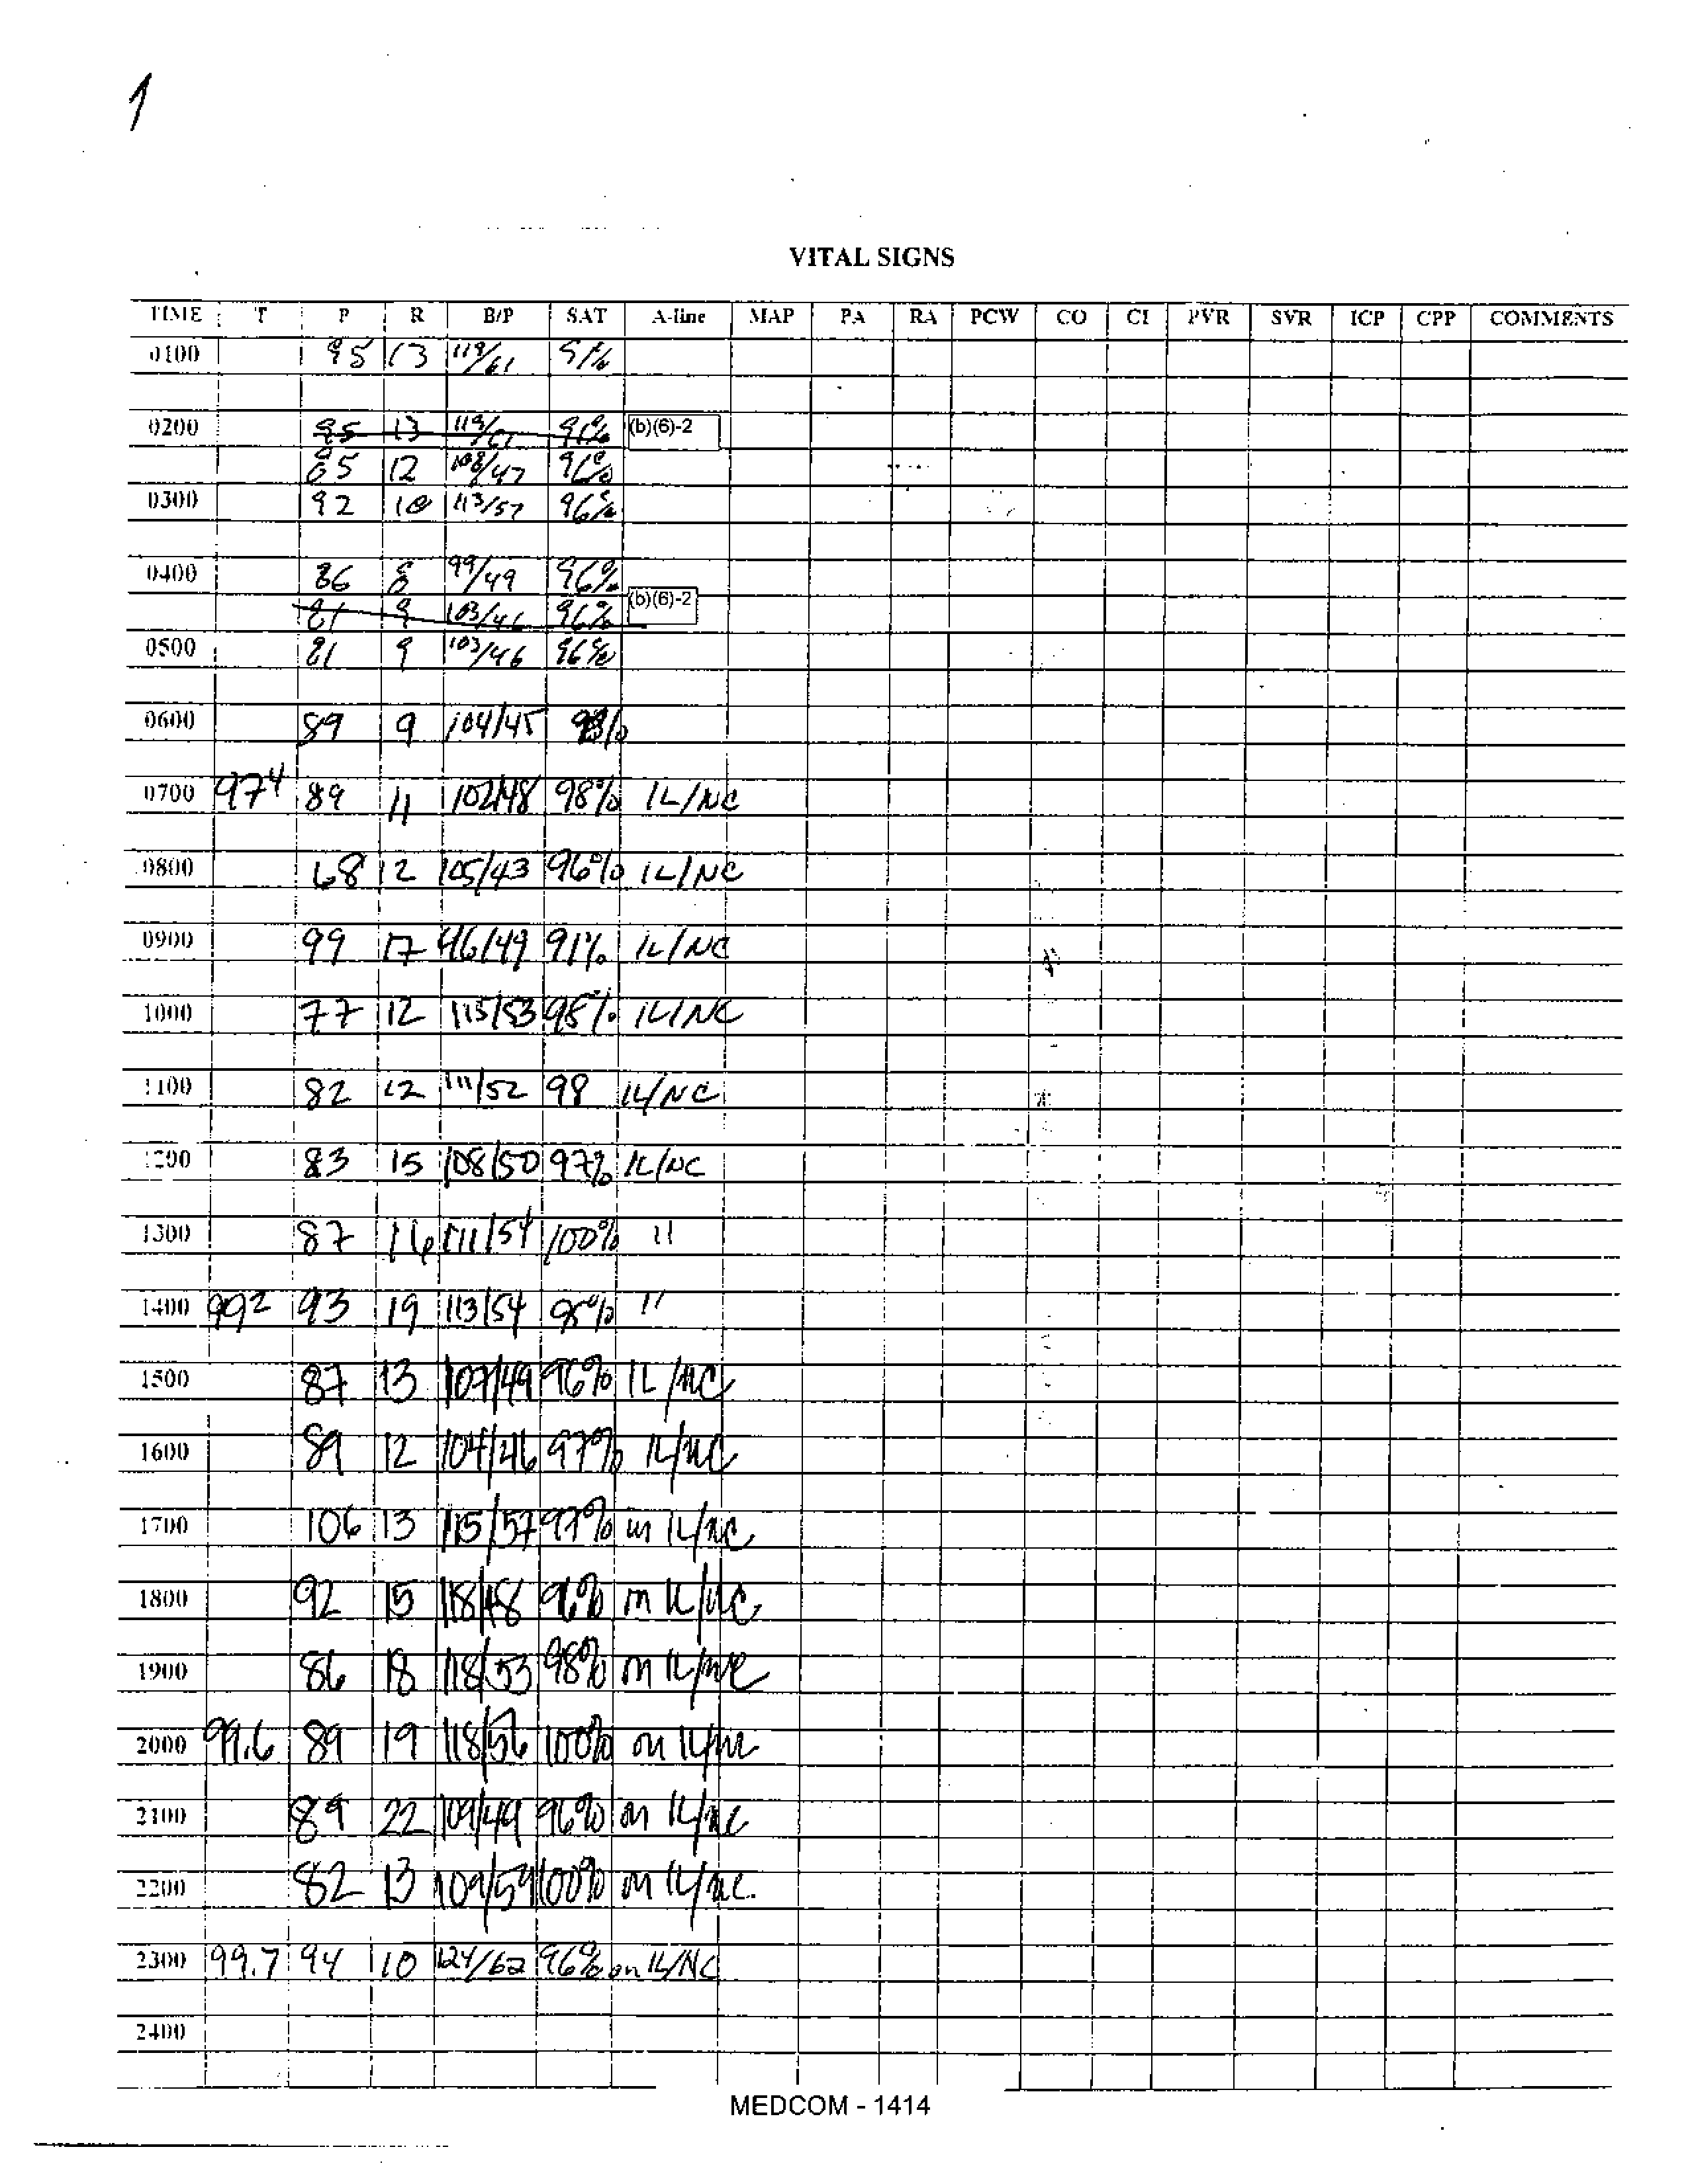 1
VITAL SIGNS
TIME T P R B/P SAT A-line MAP PA RA PCW CO CI PVR SVR ICP CPP COMMENTS
0100 95 13 119/61
0200 95 13 119/61 91% (b)(6)-2
85 12 108/47 96%
0300 92 10 113/57 96%
0400 86 8 99/49 96%
81 9 103/46 96% (b)(6)-2
0500 81 9 103/46 96%
0600 89 9 104/45
0700 974 89 11 102/48 98% 1L/NC
0800 68 12 105/43 96% 1L/NC
0900 99 17 91% 1L/NC
1000 77 12 115/53 98% 1L/NC
1100 82 12 111/52 98 1L/NC
1200 83 15 108/50 97% 1L/NC
1300 87 16 111/54 100% "
1400 992 93 19 113/54 98% "
1500 87 13 107/49 96% 1L/NC
1600 89 12 104/46 97% 1L/NC
1700 106 13 115/57 97% on 1L/NC
1800 92 15 118/48 96% on 1L/NC
1900 86 18 118/53 98% on 1L/NC
2000 99.6 89 19 118/56 100% on 1L/NC
2100 89 22 109/49 96% on 1L/NC
2200 82 13 109/59 100% on 1L/NC.
2300 99.7 94 10 124/62 96% on 1L/NC
2400
MEDCOM - 1414